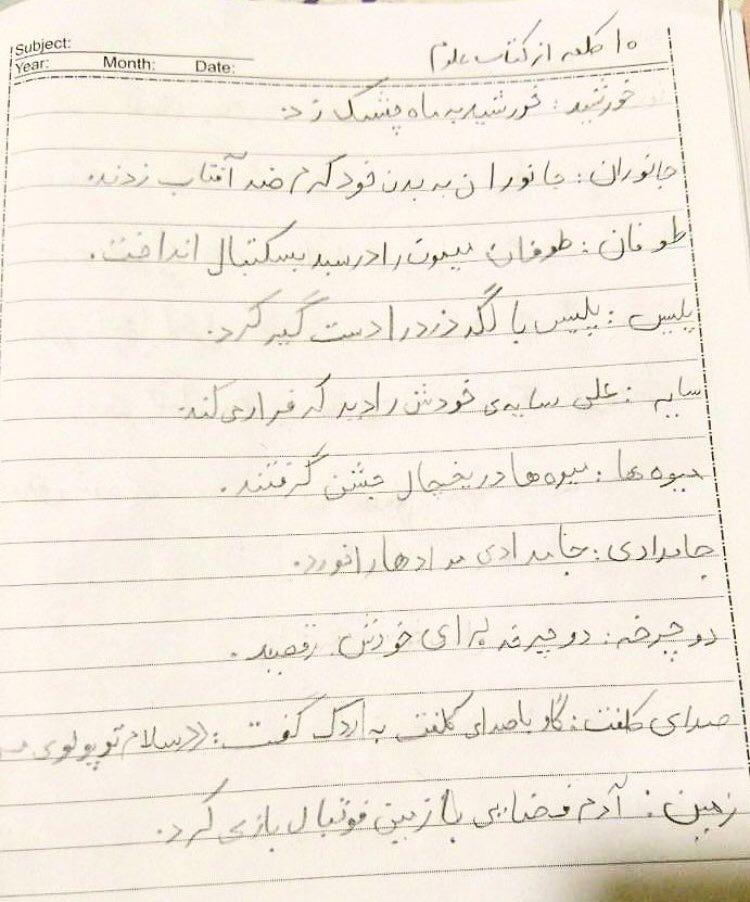 Subject:
Year: Month: Date:
۱۰ کلمه از کتاب علوم
خورشید: خورشید به ماه چشمک زد.
جانوران: جانوران به بدن خود کرم ضد آفتاب زدند.
طوفان: طوفان میمون را در سبد بسکتبال انداخت.
پلیس: پلیس با لگد دزد را دست گیر کرد.
سایه: علی سایه‌ی خودش را دید که فرار می کند.
میوه ها: میوه ها در یخچال جشن گرفتند.
جامدادی: جامدادی مدادها را خورد.
دوچرخه: دوچرخه برای خودش رقصید.
صدای کلفت: گاو با صدای کلفت به اردک گفت: ((سلام توپولوی
زمین: آدم فضایی با زمین فوتبال بازی کرد.